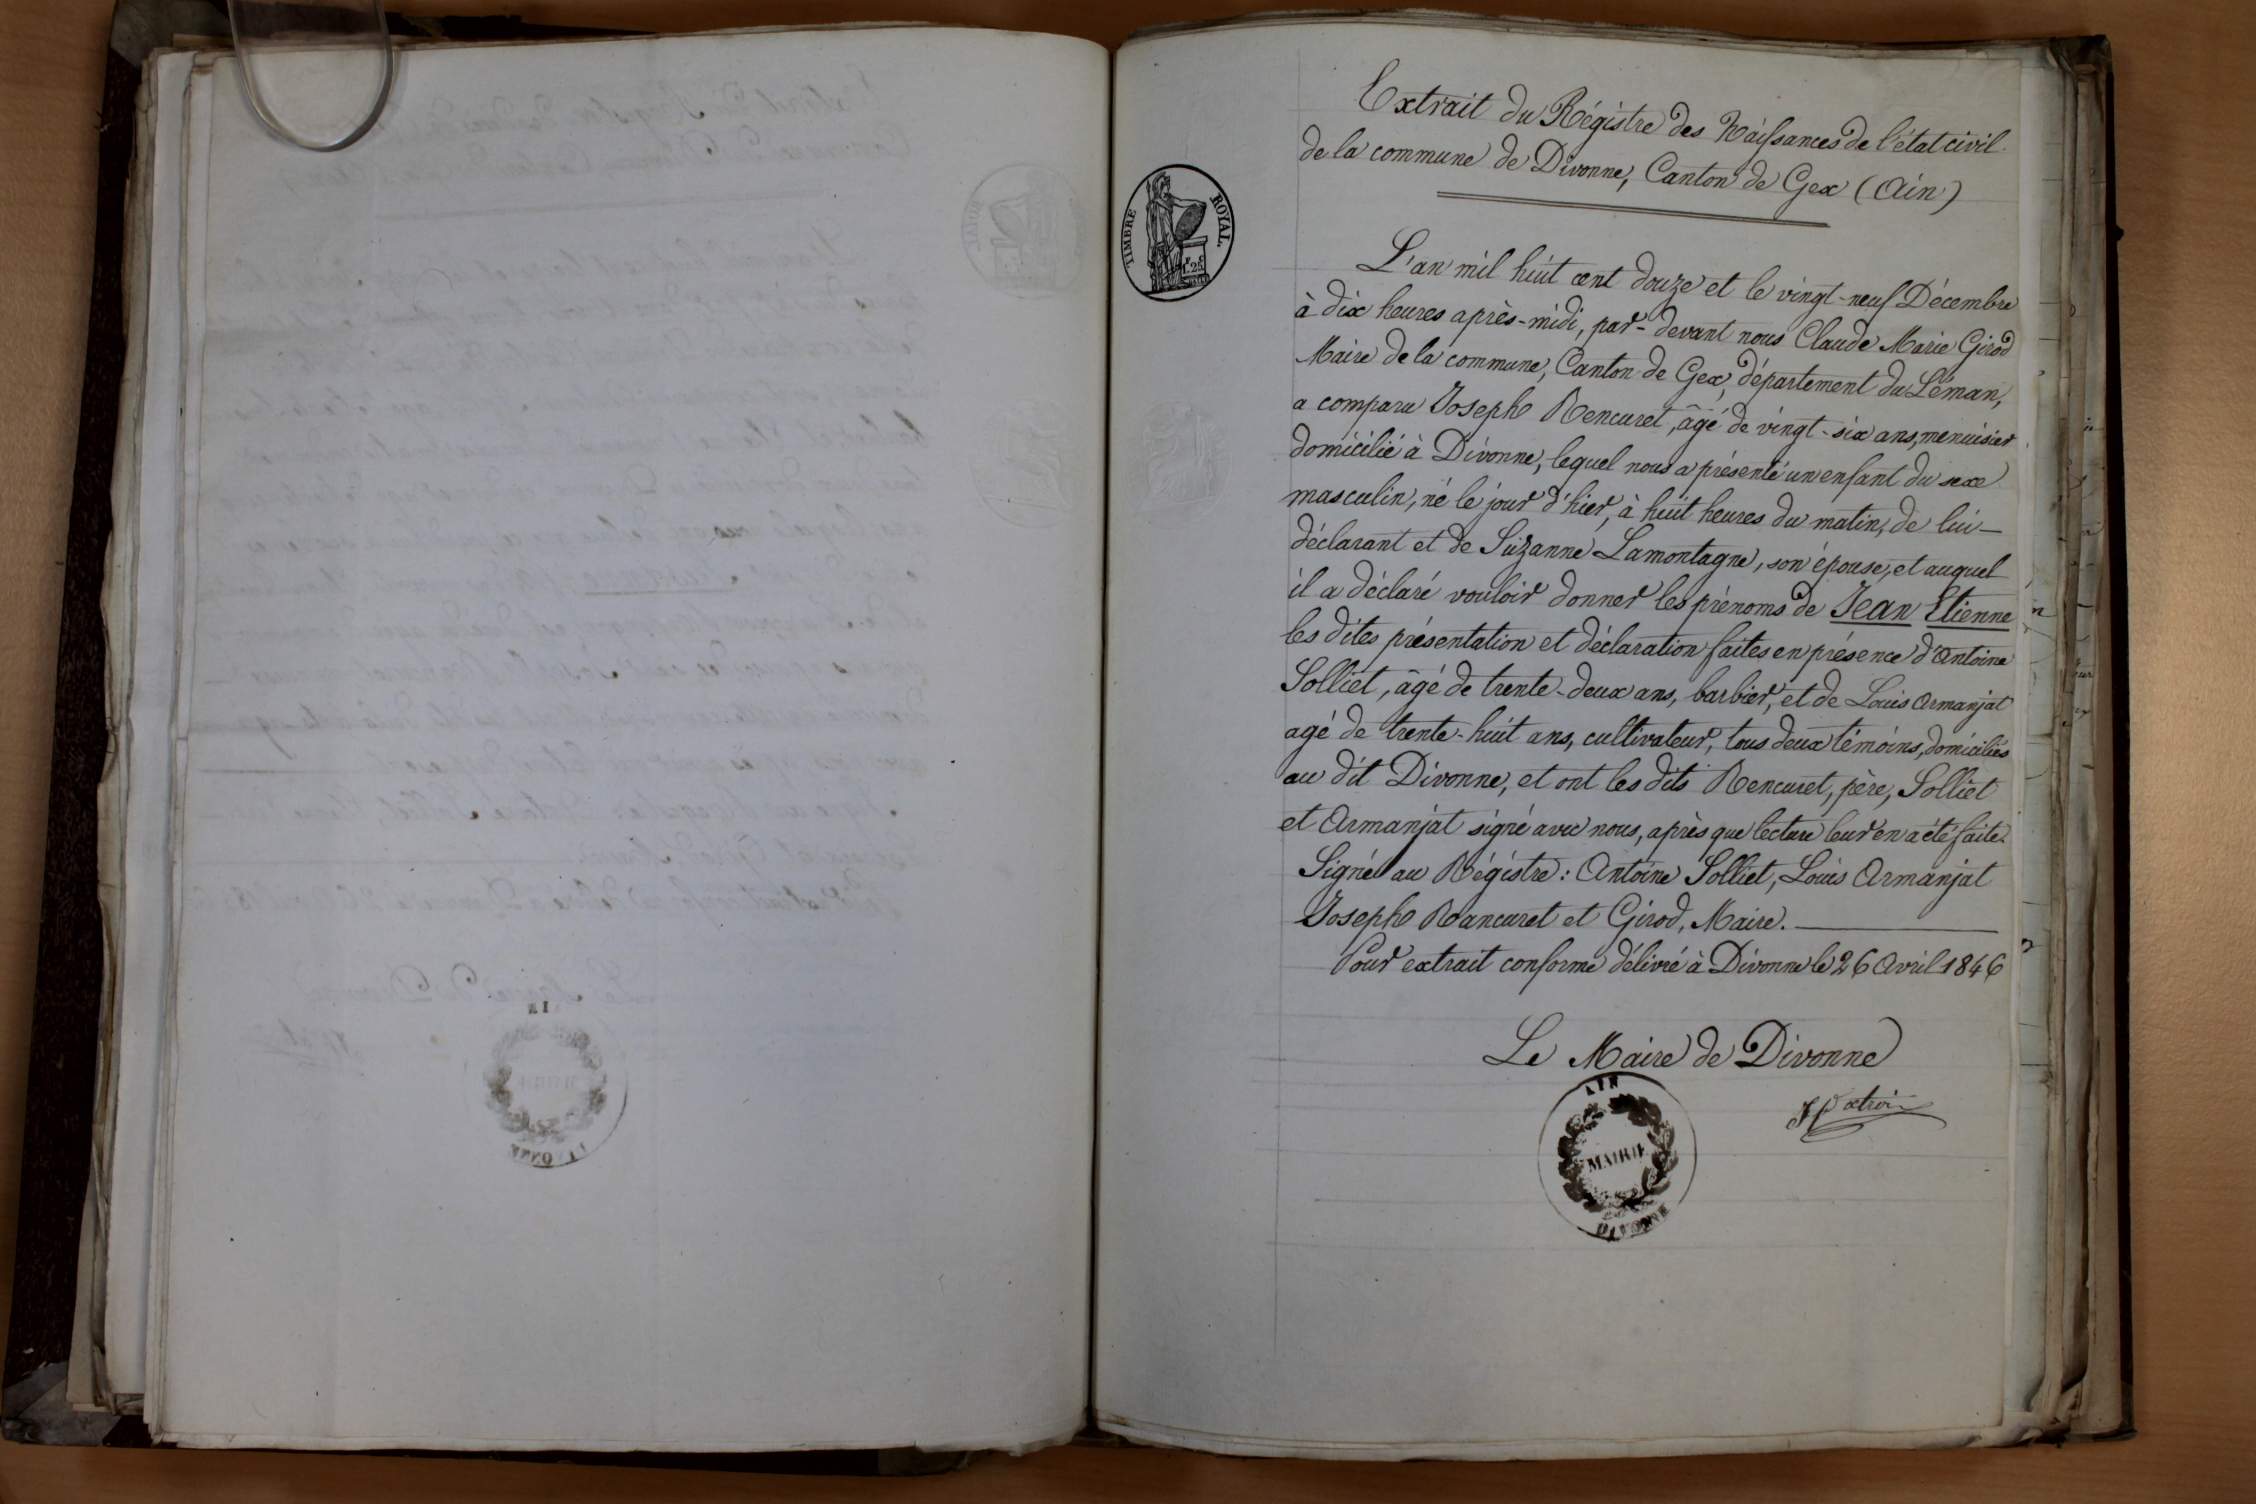 Extrait du Régistre des Naissances de l'état civil.
de la commune de Divonne, Canton de Gex (Ain)
TIMBRE ROYAL.
L'an mil huit cent douze et le vingt-neuf Décembre
à dix heures après-midi, par-devant nous Claude Marie Girod
Maire de la commune, Canton de Gex, département du Léman,
a comparu Joseph Rencuret, âgé de vingt-six ans, menuisier
domicilié à Divonne, lequel nous a présenté un enfant du sexe
masculin, né le jour d'hier, à huit heures du matin, de lui-
déclarant et de Suzanne Lamontagne, son épouse, et auquel
il a déclaré vouloir donner les prénoms de Jean Etienne
les dites présentation et déclaration faites en présence d'Antoine
Solliet, âgé de trente-deux ans, barbier, et de Louis Armanjat
agé de trente-huit ans, cultivateur, tous deux témoins, domiciliés
au dit Divonne, et ont les dits Rencuret, père, Solliet
et Armanjat signé avec nous, après que lecture leur en a été faite.
Signé au Régistre : Antoine Solliet, Louis Armanjat
Joseph Rancuret et Girod, Maire.
Pour extrait conforme délivré à Divonne le 26 Avril 1846
Le Maire de Divonne
AIN
MAIRIE
DIVONNE